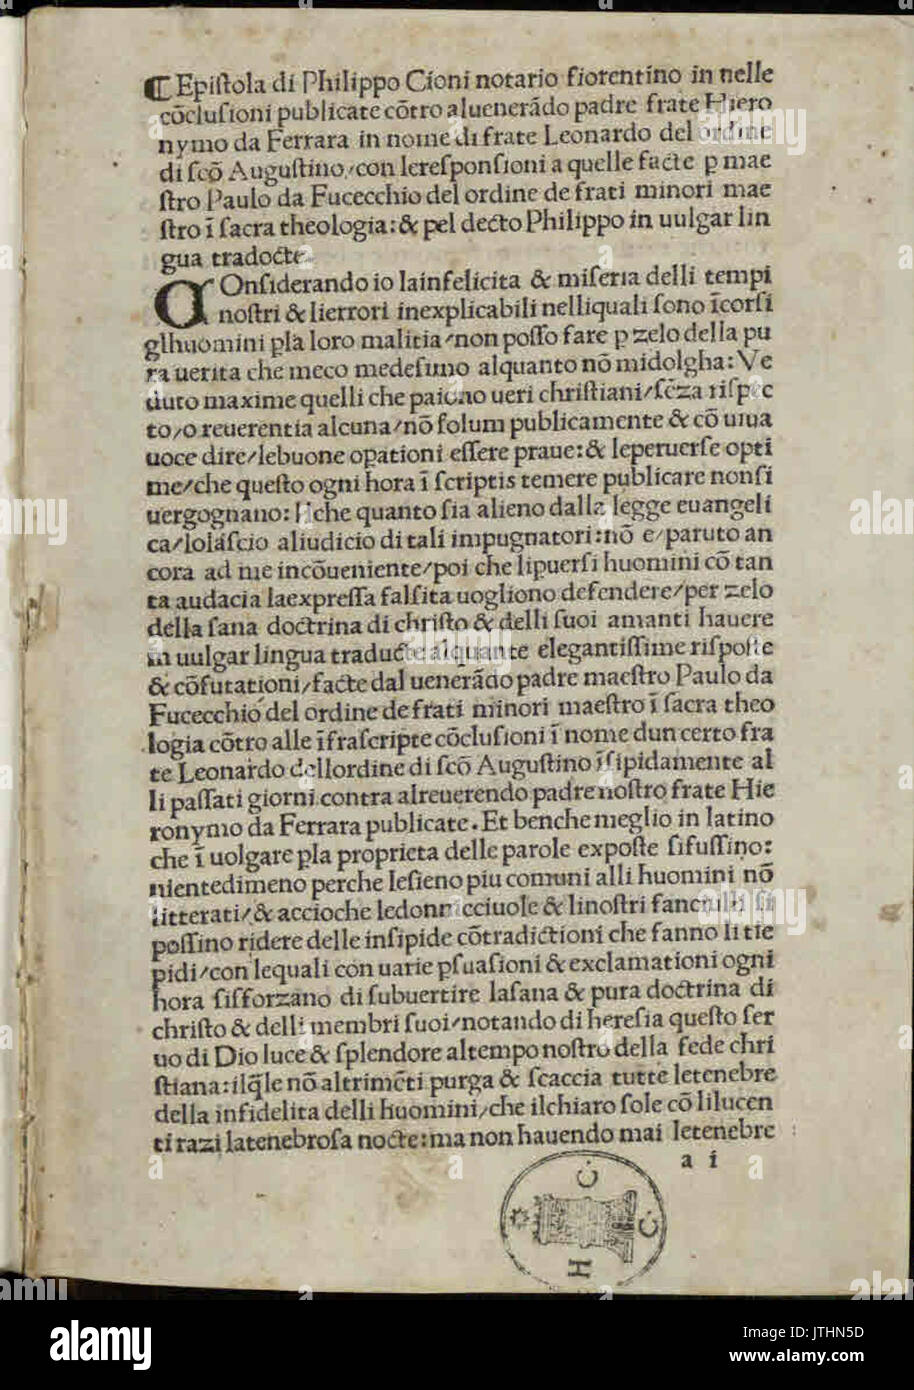 ⸿ Epiſtola di Philippo Cioni notario fiorentino in nelle
cõcluſioni publicate cõtro aluenerãdo padre frate Hiero
nymo da Ferrara in nome di frate Leonardo del ordine
di ſcõ Auguſtino/con lereſponſioni a quelle facte p mae
ſtro Paulo da Fucecchio del ordine de frati minori mae
ſtro ĩ ſacra theologia: & pel decto Philippo in uulgar lin
gua tradocte
COnſiderando io lainfelicita & miſeria delli tempi
noſtri & lierrori inexplicabili nelliquali ſono ĩcorſi
glhuomini pla loro malitia/non poſſo fare p zelo della pu
ra uerita che meco medeſimo alquanto nõ midolgha: Ve
duto maxime quelli che paiono ueri chriſtiani/ſẽza riſpec
to/o reuerentia alcuna/nõ ſolum publicamente & cõ uiua
uoce dire/lebuone opationi eſſere praue: & leperuerſe opti
me/che queſto ogni hora ĩ ſcriptis temere publicare nonſi
uergognano: Ilche quanto ſia alieno dalla legge euangeli
ca/lolaſcio aliudicio di tali impugnatori: nõ e/paruto an
cora ad me incõueniente/poi che lipuerſi huomini cõ tan
ta audacia laexpreſſa falſita uogliono defendere/per zelo
della ſana doctrina di chriſto & delli ſuoi amanti hauere
in uulgar lingua traducte alquante elegantiſſime riſpoſte
& cõfutationi/facte dal uenerãdo padre maeſtro Paulo da
Fucecchio del ordine de frati minori maeſtro ĩ ſacra theo
logia cõtro alle ĩfraſcripte cõcluſioni ĩ nome dun certo fra
te Leonardo dellordine di ſcõ Auguſtino ĩſipidamente al
li paſſati giorni contra alreuerendo padre noſtro frate Hie
ronymo da Ferrara publicate. Et benche meglio in latino
che ĩ uolgare pla proprieta delle parole expoſte ſifuſſino:
nientedimeno perche leſieno piu comuni alli huomini nõ
litterati/& accioche ledonnicciuole & linoſtri fanciulli ſi
poſſino ridere delle inſipide cõtradictioni che fanno li tie
pidi/con lequali con uarie pſuaſioni & exclamationi ogni
hora ſiſforzano di ſubuertire laſana & pura doctrina di
chriſto & delli membri ſuoi/notando di hereſia queſto ſer
uo di Dio luce & ſplendore altempo noſtro della fede chri
ſtiana: ilq̃le nõ altrimẽti purga & ſcaccia tutte letenebre
della infidelita delli huomini/che ilchiaro ſole cõ lilucen
ti razi latenebroſa nocte: ma non hauendo mai letenebre
a i
C C H
alamy
alamy stock photo
JTHN5D
www.alamy.com